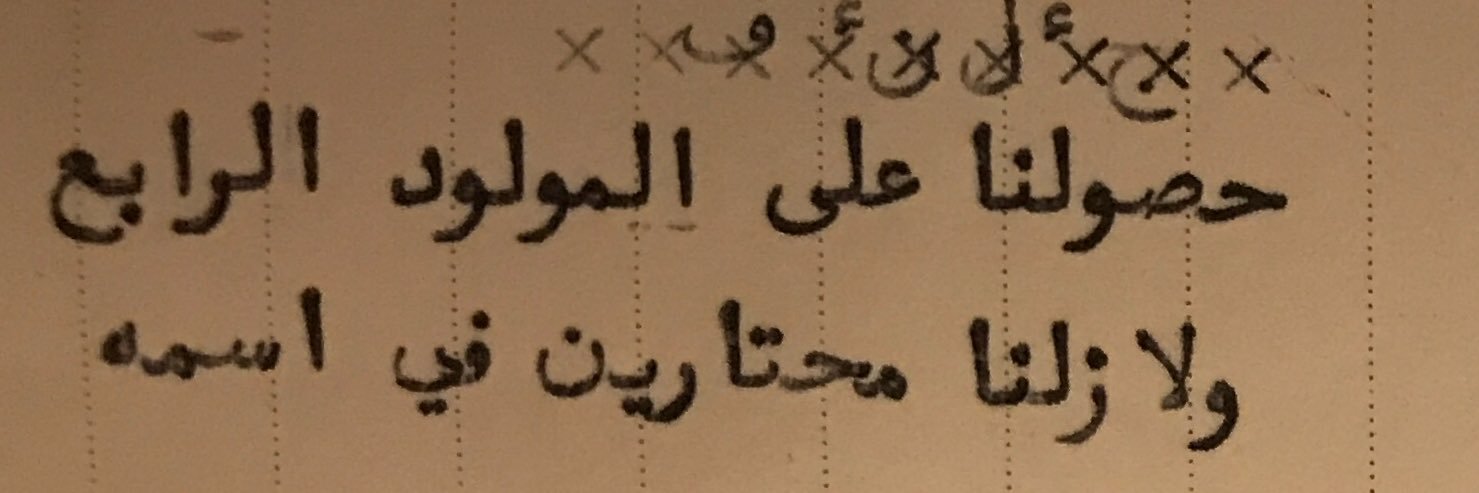 حصولنا على المولود الرابع
ولا زلنا محتارين في اسمه